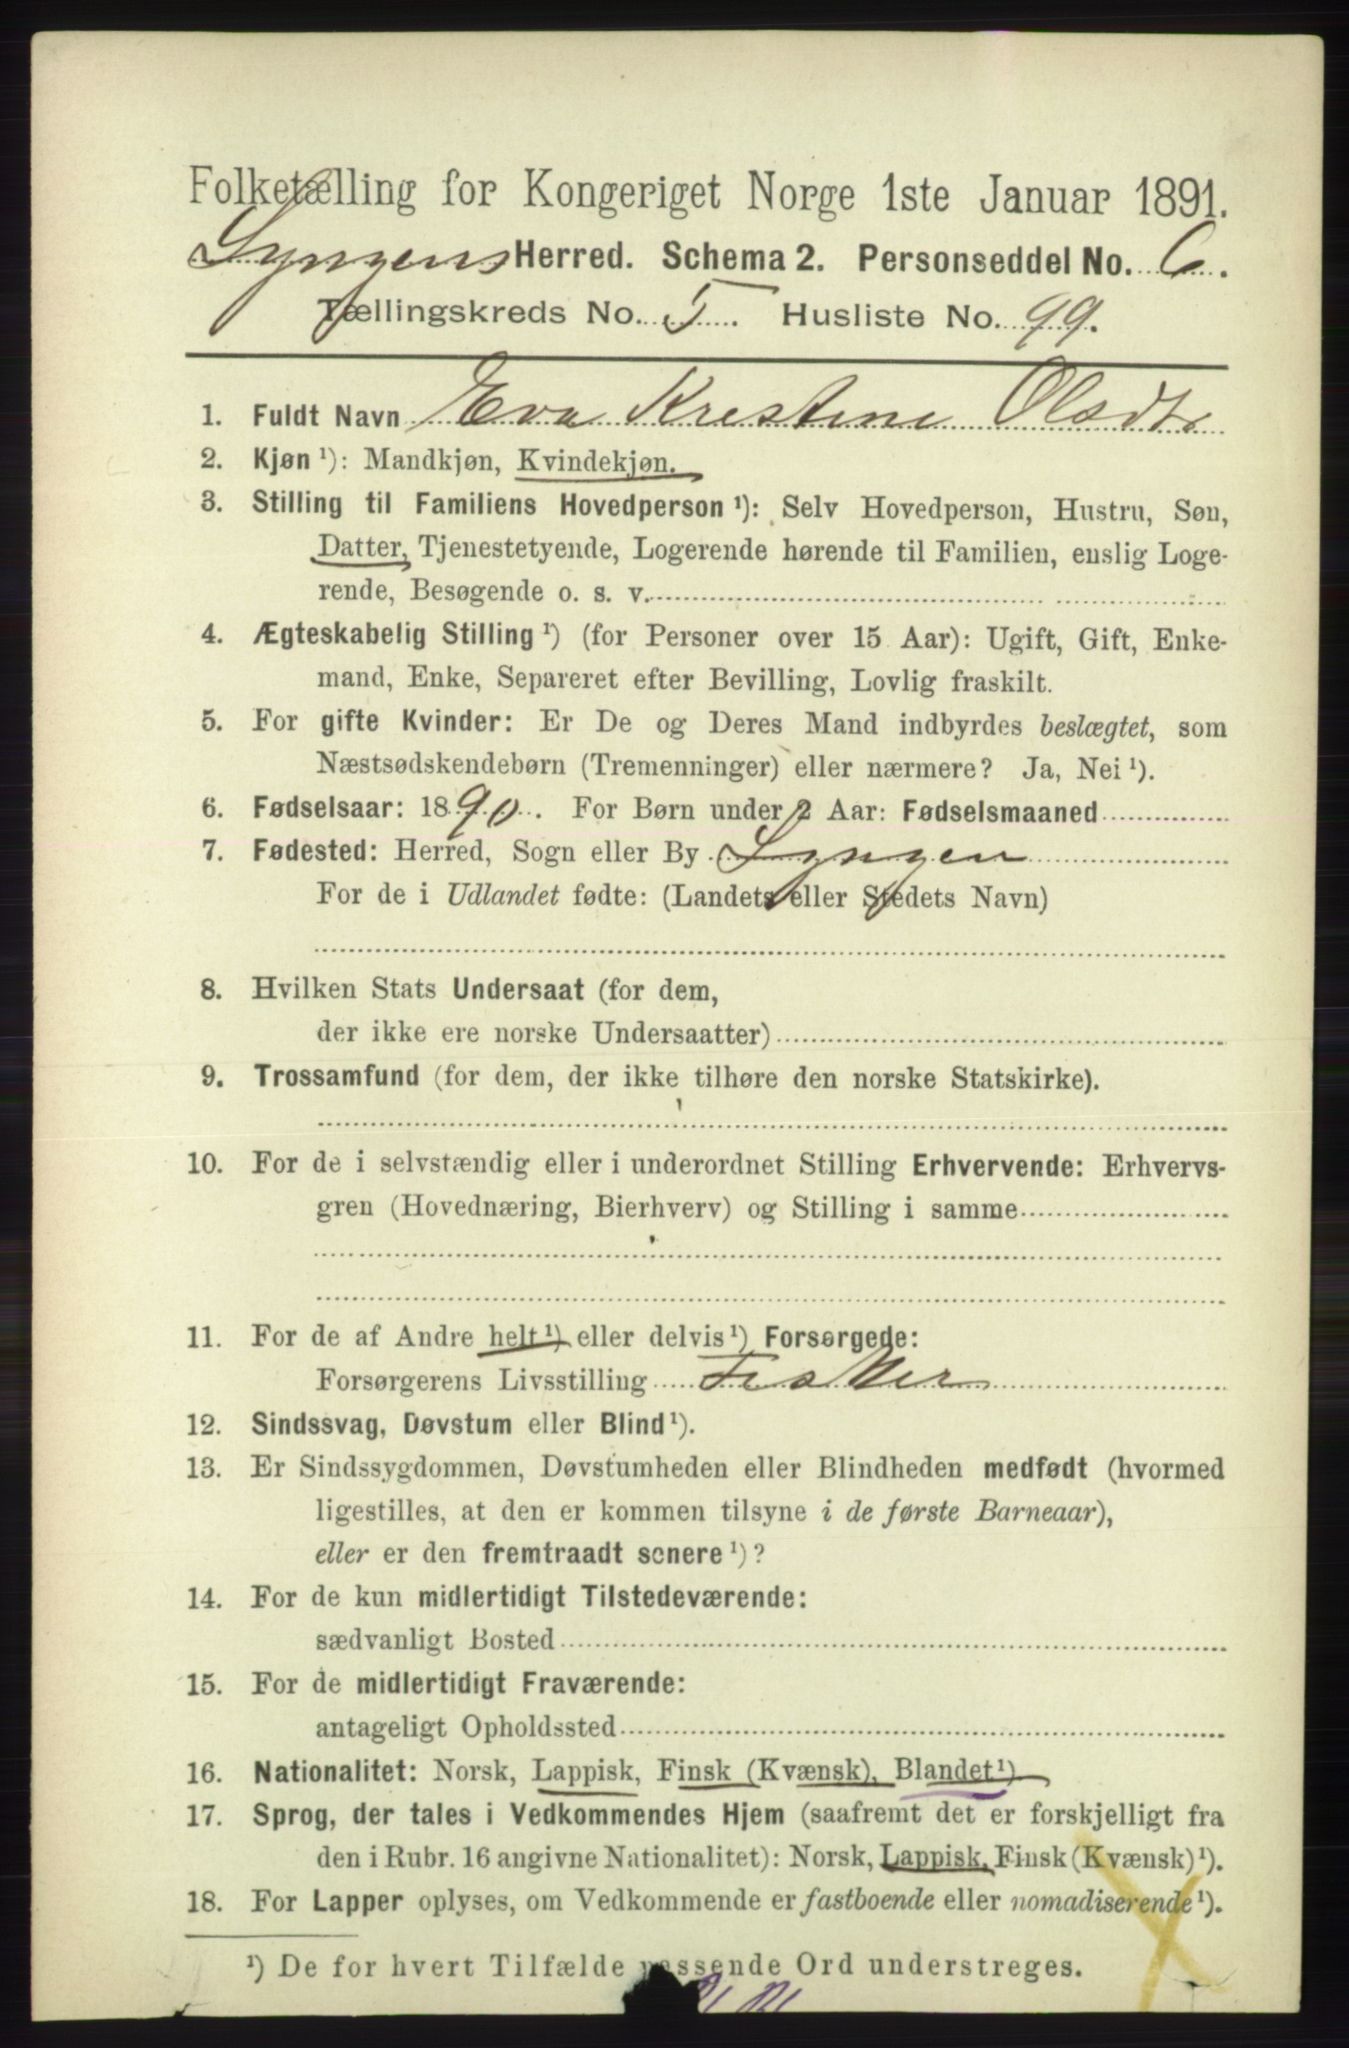 Folketælling for Kongeriget Norge 1ste Januar 1891.
Lyngens Herred. Schema 2. Personseddel No. 6.
Tællingskreds No. 5. Husliste No. 99.
1. Fuldt Navn Eva Krestine Olsdtr
2. Kjøn ¹): Mandkjøn, Kvindekjøn.
3. Stilling til Familiens Hovedperson ¹): Selv Hovedperson, Hustru, Søn,
Datter, Tjenestetyende, Logerende hørende til Familien, enslig Loge-
rende, Besøgende o. s. v.
4. Ægteskabelig Stilling ¹) (for Personer over 15 Aar): Ugift, Gift, Enke-
mand, Enke, Separeret efter Bevilling, Lovlig fraskilt.
5. For gifte Kvinder: Er De og Deres Mand indbyrdes beslægtet, som
Næstsødskendebørn (Tremenninger) eller nærmere? Ja, Nei ¹).
6. Fødselsaar: 1890. For Børn under 2 Aar: Fødselsmaaned
7. Fødested: Herred, Sogn eller By Lyngen
For de i Udlandet fødte: (Landets eller Stedets Navn)
8. Hvilken Stats Undersaat (for dem,
der ikke ere norske Undersaatter)
9. Trossamfund (for dem, der ikke tilhøre den norske Statskirke).
10. For de i selvstændig eller i underordnet Stilling Erhvervende: Erhvervs-
gren (Hovednæring, Bierhverv) og Stilling i samme
11. For de af Andre helt ¹) eller delvis ¹) Forsørgede:
Forsørgerens Livsstilling Fisker
12. Sindssvag, Døvstum eller Blind ¹).
13. Er Sindssygdommen, Døvstumheden eller Blindheden medfødt (hvormed
ligestilles, at den er kommen tilsyne i de første Barneaar),
eller er den fremtraadt senere ¹)?
14. For de kun midlertidigt Tilstedeværende:
sædvanligt Bosted
15. For de midlertidigt Fraværende:
antageligt Opholdssted
16. Nationalitet: Norsk, Lappisk, Finsk (Kvænsk), Blandet ¹)
17. Sprog, der tales i Vedkommendes Hjem (saafremt det er forskjelligt fra
den i Rubr. 16 angivne Nationalitet): Norsk, Lappisk, Finsk (Kvænsk) ¹).
18. For Lapper oplyses, om Vedkommende er fastboende eller nomadiserende ¹).
¹) De for hvert Tilfælde passende Ord understreges.